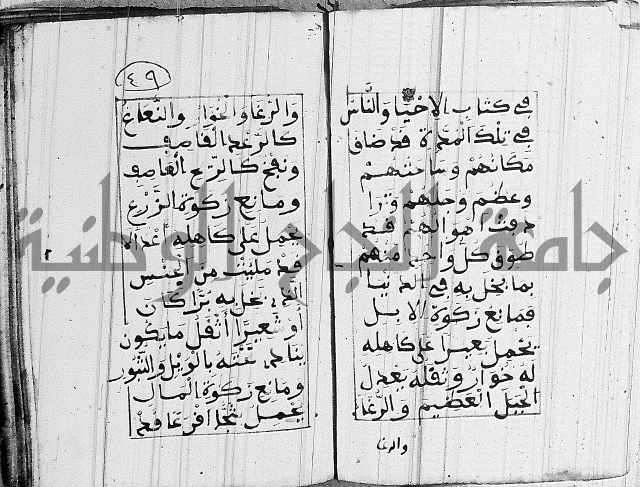 في كتاب الاحيا والناس
في تلك قد ضاق
مكانهم
وعظم وحلهم
اهوالهم قد
طوق كل واحد منهم
بما بخل به في الدنيا
فمانع زكوة الابل
يحمل بعيرا على كاهله
له خوار وثقله يعدل
الجبل العظيم والرغا
والرغا
٤٩
والرغا والخوار
كالرعد القاصف
ونفح كالريح العاصف
ومانع زكوة الزرع
يحمل على كاهله اعدالا
قد مليت من الجنس
الذي بخل به برا كان
او شعيرا اثقل ما يكون
ينادي تحته بالويل والثبور
ومانع زكوة المال
يحمل شجاعا اقرع
جامعة النجاح الوطنية